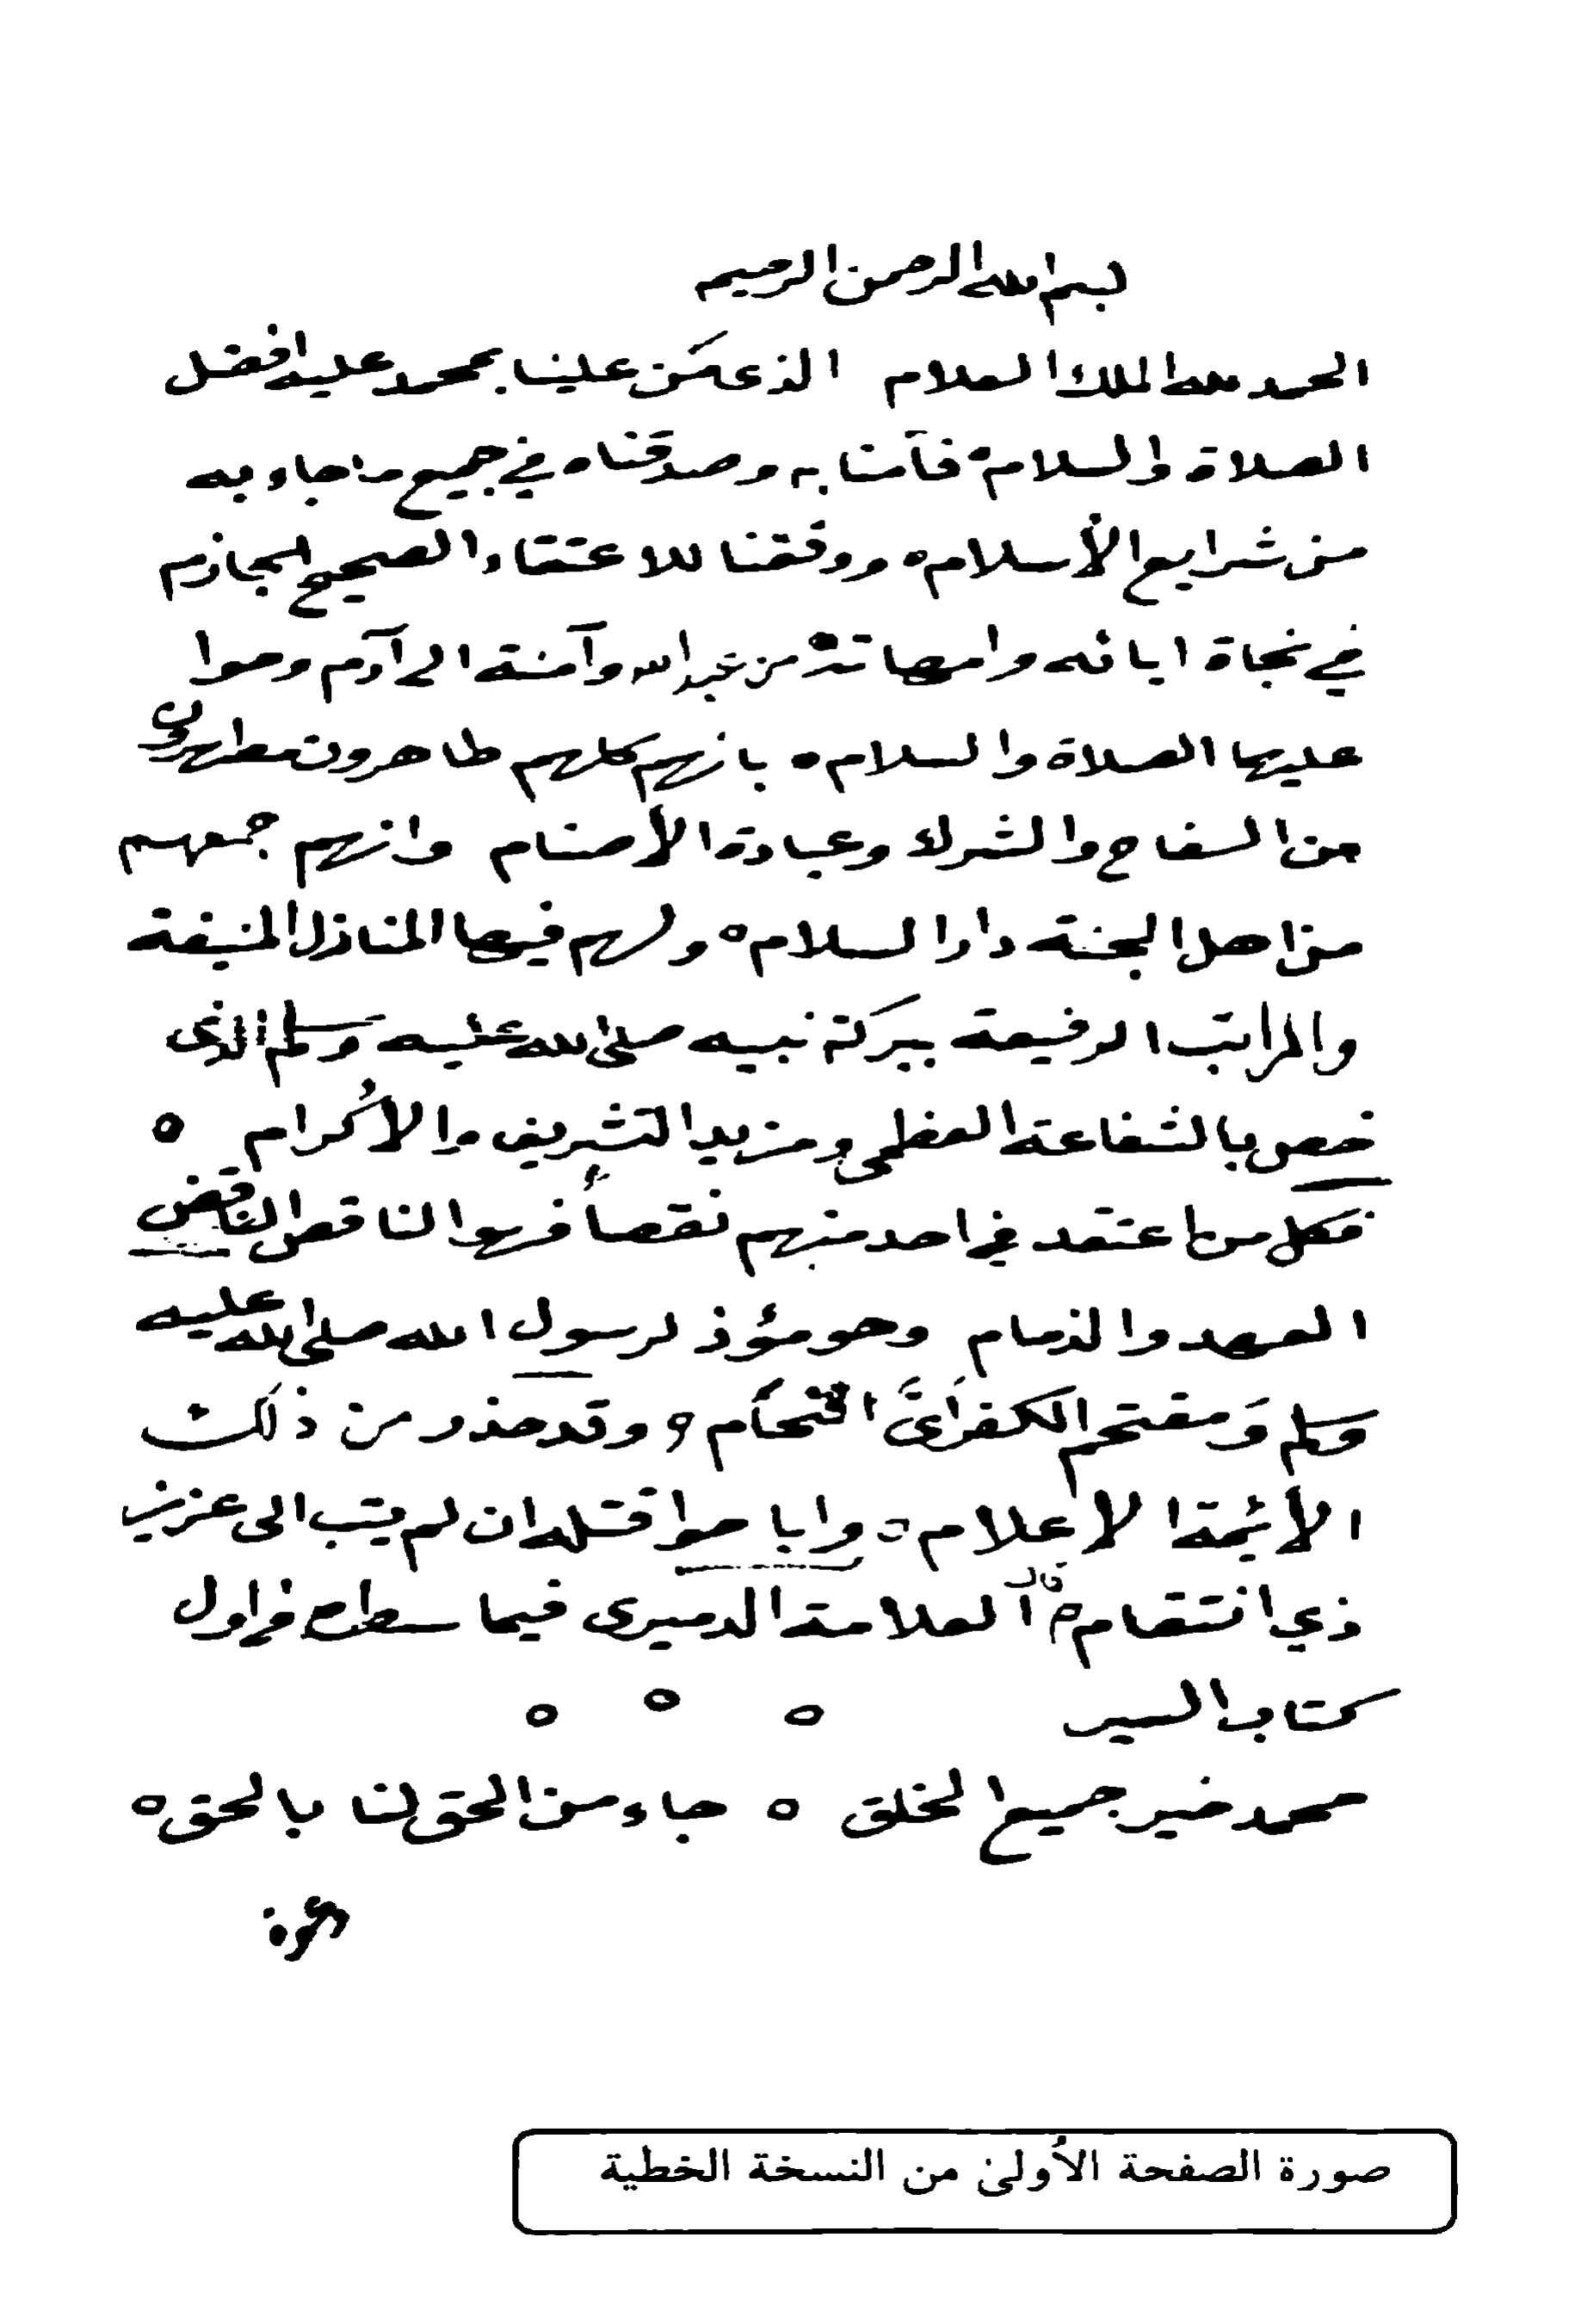 بسم الله الرحمن الرحيم
الحمد لله الملك العلام الذى مَن علينا بمحمد عليه افضل
الصلاة والسلام فآمنا به وصدقناه في جميع ما جاء به
من شرايع الأسلام ووفقنا للاعتقاد الصحيح الجازم
في نجاة ابائه وامهاته من عبد الله وآمنة الى آدم وحوا
عليها الصلاة والسلام بانهم كلهم طاهرون مطهرون
من السفاح والشرك وعبادة الأصنام وانهم جمعهم
من اهل الجنة دار السلام ولهم فيها المنازل المنيفة
والمراتب الرفيعة ببركة نبيه صلى الله عليه وسلم الذى
خص بالشفاعة العظمى ومزيد التشريف والأكرام
فكل من اعتقد في احد منهم نقصاً فهو الناقص الناقض
العهد والذمام وهو مؤذ لرسول الله صلى الله عليه
وسلم وَمقتحم الكفر أىَّ اقتحام وقد حذر من ذلك
الأئمة الأعلام واباحوا قتله ان لم يتب الى عزيز
ذي انتقام قال العلامة الدميرى فيما سطره في اول
كتاب السير
محمد خير جميع الخلق جاء من الحق لنا بالحق
صورة الصفحة الأولىٰ من النسخة الخطية